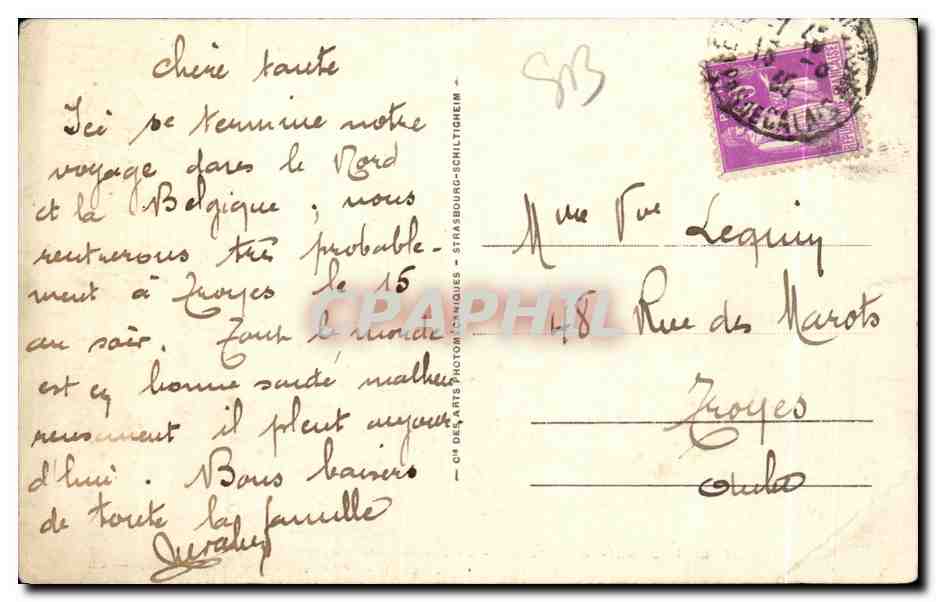 Chère tante
Ici se termine notre
voyage dans le Nord
et la Belgique, nous
rentrerons très probable-
ment à Troyes le 15
au soir. Tout le monde
est en bonne santé malheu
reusement il pleut aujour-
d'hui. Bons baisers
de toute la famille
SB
CIE DES ARTS PHOTOMÉCANIQUES - STRASBOURG-SCHILTIGHEIM
CPAPHIL
Mme Vve Lequin
48 Rue des Marots
Troyes
Aube